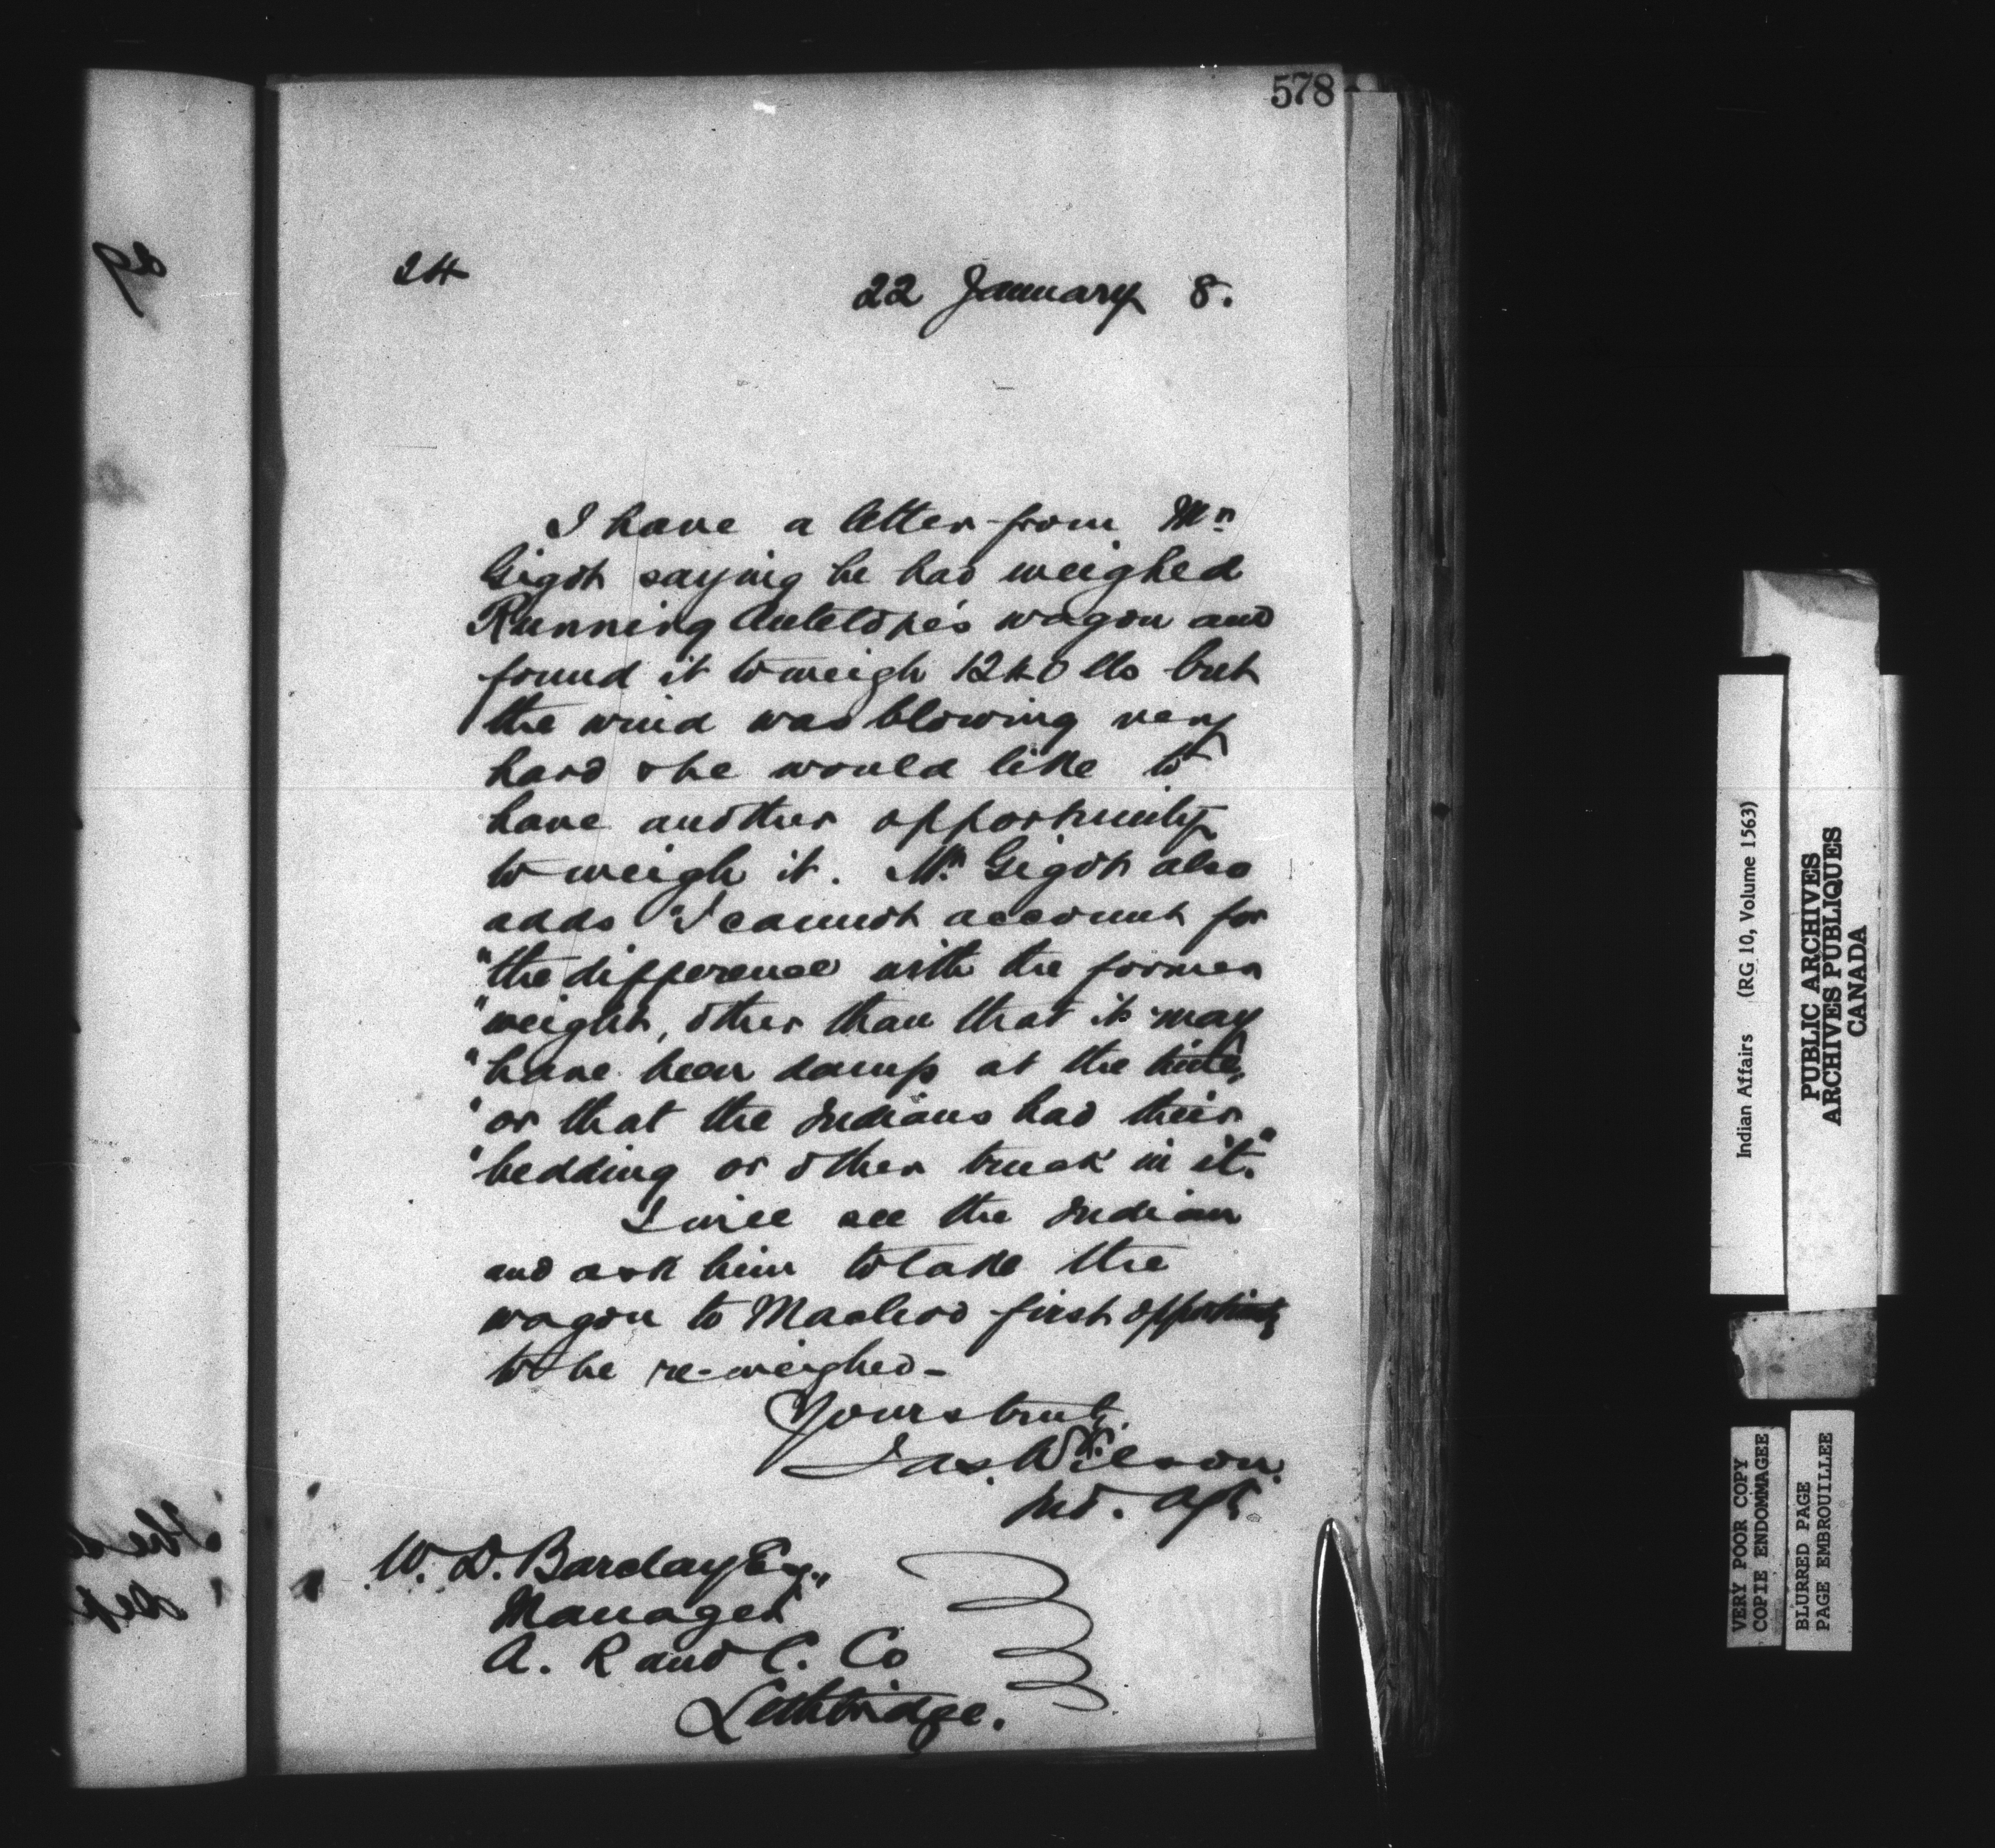 578
24
22 January 8.
I have a letter from Mr
Gigot saying he had weighed
Running Antelope's wagon and
found it to weigh 1240 lbs but
the wind was blowing very
hard & he would like to
have another opportunity
to weigh it. Mr Gigot also
adds "I cannot account for
"the difference with the former
"weight, other than that it may
"have been damp at the time,
"or that the Indians had their
"bedding or other truck in it."
I will see the Indian
and ask him to take the
wagon to Macleod first opportunity
to be re-weighed -
Yours truly,
Jas. Wilson.
Ind. Agt.
W. D. Barclay Esq.,
Manager
A. R and C. Co
Lethbridge.
Indian Affairs (RG 10, Volume 1563)
PUBLIC ARCHIVES
ARCHIVES PUBLIQUES
CANADA
VERY POOR COPY
COPIE ENDOMMAGEE
BLURRED PAGE
PAGE EMBROUILLEE